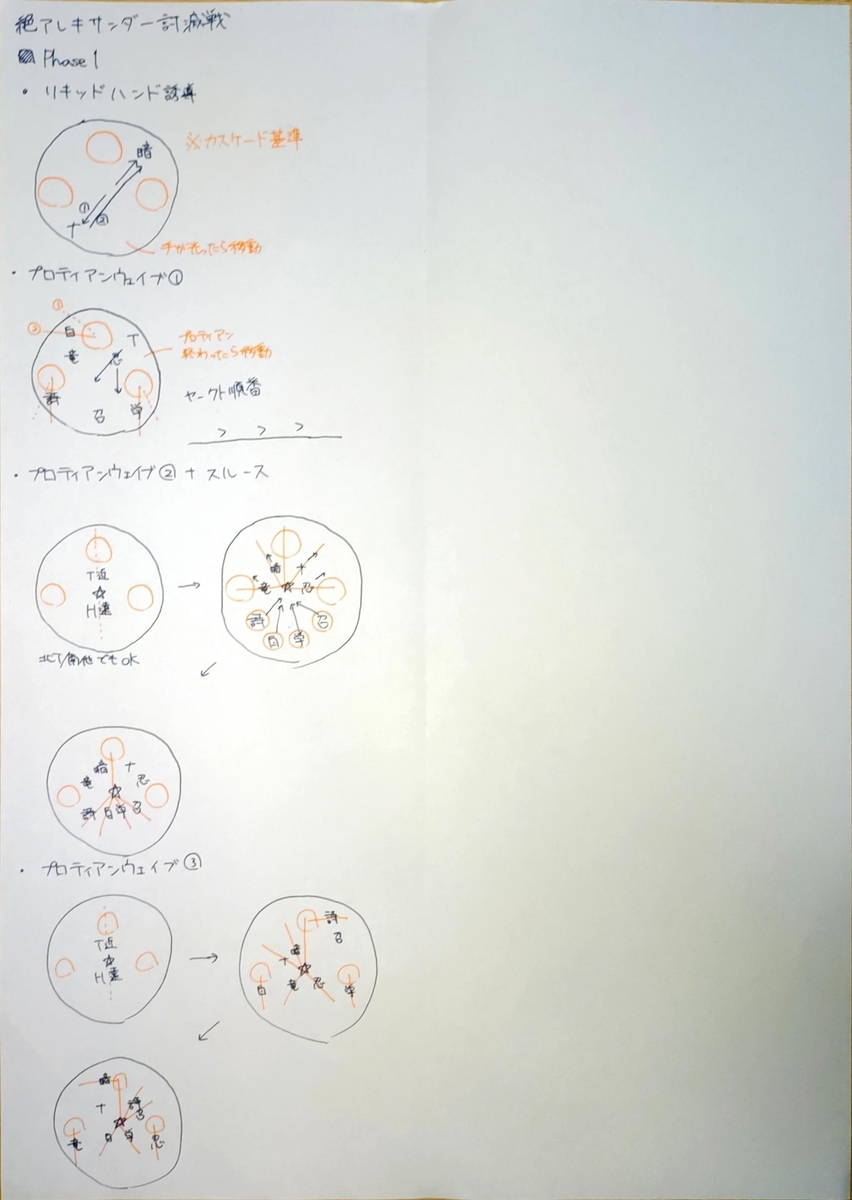 絶アレキサンダー討滅戦
Phase1
・ リキッドハンド誘導
※カスケード基準
暗
①
②
ナ
手が光ったら移動
・ プロティアンウェイブ①
①
②
白
T
竜
忍
プロティアン
終わったら移動
詩
召
学
ヤークト順番
> > >
・ プロティアンウェイブ② + スルース
T近
☆
H遠
→
暗
ナ
竜
☆
忍
詩
白
学
召
暗
ナ
竜
忍
☆
詩
白
学
召
・ プロティアンウェイブ③
T近
☆
H遠
→
詩
召
暗
ナ
☆
白
竜
忍
学
暗
ナ
詩
召
☆
竜
白
学
忍